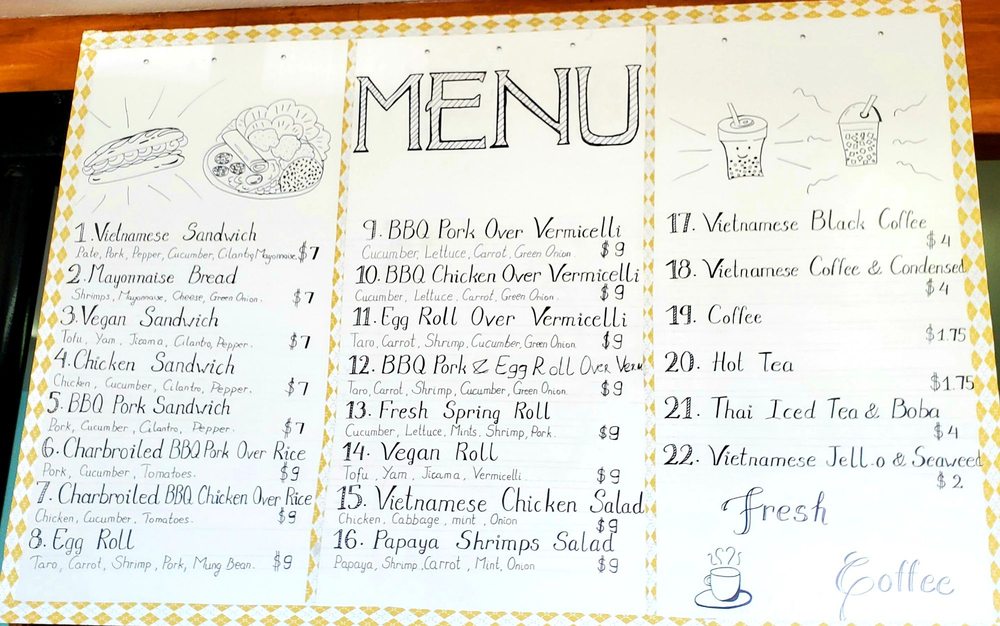 MENU
1. Vietnamese Sandwich
Pate, Pork, Pepper, Cucumber, Cilantro, Mayonnaise. $7
2. Mayonnaise Bread
Shrimps, Mayonnaise, Cheese, Green Onion. $7
3. Vegan Sandwich
Tofu, Yam, Jicama, Cilantro, Pepper. $7
4. Chicken Sandwich
Chicken, Cucumber, Cilantro, Pepper. $7
5. BBQ Pork Sandwich
Pork, Cucumber, Cilantro, Pepper. $7
6. Charbroiled BBQ Pork Over Rice
Pork, Cucumber, Tomatoes. $9
7. Charbroiled BBQ Chicken Over Rice
Chicken, Cucumber, Tomatoes. $9
8. Egg Roll
Taro, Carrot, Shrimp, Pork, Mung Bean. $9
9. BBQ Pork Over Vermicelli
Cucumber, Lettuce, Carrot, Green Onion. $9
10. BBQ Chicken Over Vermicelli
Cucumber, Lettuce, Carrot, Green Onion. $9
11. Egg Roll Over Vermicelli
Taro, Carrot, Shrimp, Cucumber, Green Onion. $9
12. BBQ Pork & Egg Roll Over Verm
Taro, Carrot, Shrimp, Cucumber, Green Onion. $9
13. Fresh Spring Roll
Cucumber, Lettuce, Mints, Shrimp, Pork. $9
14. Vegan Roll
Tofu, Yam, Jicama, Vermicelli. $9
15. Vietnamese Chicken Salad
Chicken, Cabbage, mint, Onion $9
16. Papaya Shrimps Salad
Papaya, Shrimp, Carrot, Mint, Onion $9
17. Vietnamese Black Coffee
$4
18. Vietnamese Coffee & Condensed
$4
19. Coffee
$1.75
20. Hot Tea
$1.75
21. Thai Iced Tea & Boba
$4
22. Vietnamese Jell.o & Seaweed
$2
Fresh
Coffee